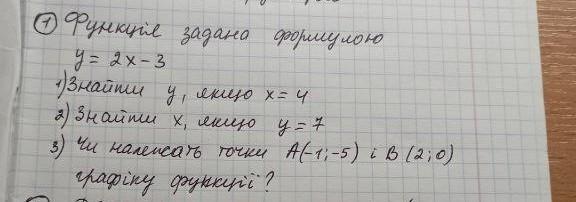 ① Функція задана формулою
y = 2x - 3
1) Знайти y, якщо x = 4
2) Знайти x, якщо y = 7
3) Чи належать точки A(-1; -5) і B (2; 0)
графіку функції?